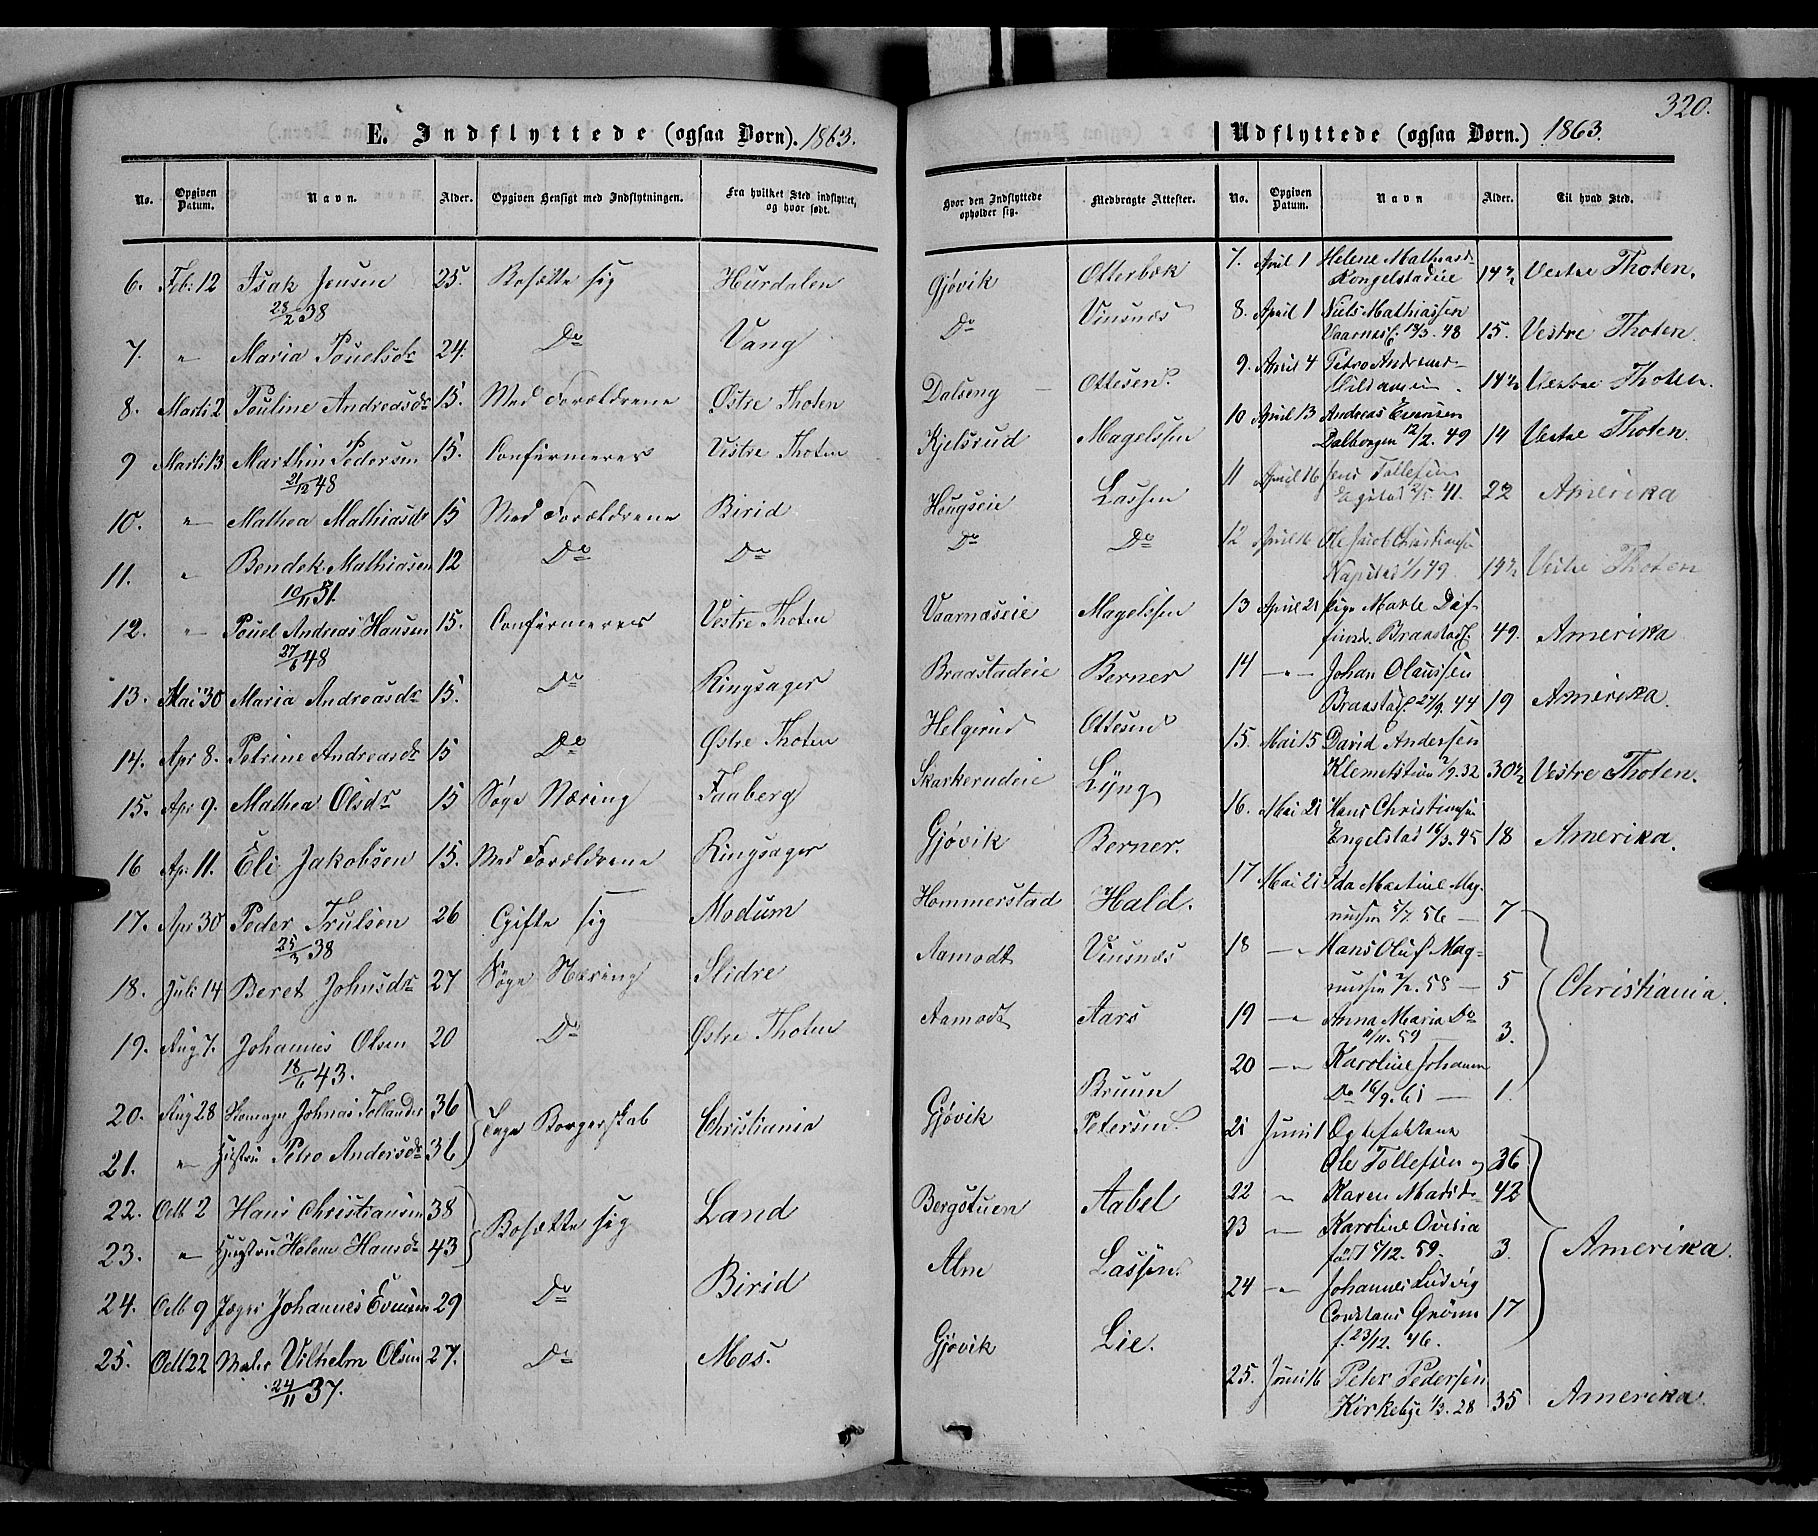 320.
E. Indflyttede (ogsaa Børn). 1863.
No. Opgiven Datum. Navn. Alder. Opgiven Hensigt med Indflytningen. Fra hvilket Sted indflyttet, og hvor født. Hvor den Indflyttede opholder sig. Medbragte Attester.
6. Feb: 12 Isak Jensen 25. Bosætte sig Hurdalen Gjøvik Otterbæk
23/2 38
7. " Maria Pouelsdr 24. Do Vang Do Vinsnæs
8. Marti 2 Pouline Andreasdr 15. Med Forældrene Østre Thoten Dalseng Ottesen
9 Marti 13 Marthin Pedersen 15. Confirmeres Vestre Thoten Kjelsrud Magelssen
21/12 48
10. " Mathea Mathiasdr 15 Med Forældrene Birid Hougseie Lassen
11. " Bendek. Mathiasen 12 Do Do Do Do
10/11 51.
12. " Pouel Andreas Hansen 15. Confirmeres Vestre Thoten Vaarnæseie Magelssen
27/6 48
13. Mai 30 Maria Andreasdr 15. Do Ringsager Braastadeie Berner
14. Apr 8. Petrine Andreasdr 15 Do Østre Thoten Helgerud Ottesen
15. Apr 9. Mathea Olsdr 15 Søge Næring Faaberg Skarkerudeie Lyng
16 Ap: 11. Eli Jakobsen 15. Med Forældrene Ringsager Gjøvik Berner.
17. Apr 30 Peder Trulsen 26 Gifte sig Modum Hommerstad Hald.
25/3 38
18. Juli 14 Beret Johnsdr 27 Søge Næring Slidre Aamodt Vinsnæs
19. Aug 7. Johannes Olsen 20 Do Østre Thoten Aamodt Aars
18/6 43.
20. Aug 28 Johnas Tollander 36 Tage Borgerskab Christiania Gjøvik Bruun
21. " Hustru Petro Andersdr 36 Petersen
22. Octb 2 Hans Christiansen 38 Bosætte sig Land Bergstuen Aabel
23. " Hustru Helene Hansdr 43
24. Octb 9 Jæger Johannes Evensen 29 Do Birid Alm Lassen
25. Octb 22 Maler Vilhelm Olsen 27. Do Mos. Gjøvik Lie.
24/11 37.
Udflyttede (ogsaa Børn.) 1863.
No. Opgiven Datum. Navn Alder. Til hvad Sted.
7. April 1 Helene Mathiasd.
Kongelstadeie 14½ Vestre Thoten.
8. April 1 Niels Mathiassen
15. Vestre Thoten.
9. April 4 Petro Andreasd.
14½ Vestre Thoten.
10 April 13 Andreas Evensen
Dalborgen 12/2. 49 14 Vestre Thoten.
11 April 16 Jens Tollefsen
Engstad 41. 22 Amerika
12 April 16 Ole Jacob Christians.
Kapstad 49. 14½ Vestre Thoten
13 April 21 Pige Marte Daf-
finsd. Braastad 49. Amerika
14 " Johan Olaussen
Braastad. 27/9. 44 19 Amerika.
15. Mai 15 David Andersen
Klemetstuen 32 30½ Vestre Thoten.
16. Mai 21 Hans Christiansen
Engelstad 16/3. 45 18 Amerika.
17 Mai 21 Ida Martine Mag-
nussen 5/7. 56 — 7
18 — " Hans Oluf Mag-
nussen 58 — 5 Christiania.
19 — " Anna Maria Do
59 — 3.
20 — " Karoline Johanne
Do 16/9. 61 — 1.
21 Juni 1 Ægtefolkene
Ole Tollefsen og 36
22 " Karen Madsd. 42
23 " Karoline Ovisia
født 5/12. 59. 3. Amerika.
24 " Johannes Ludvig
Constans Grønn 17
f. 23/12. 46.
25. Juni 16 Peter Pedersen
Kirkebye 1/3. 28 35 Amerika.